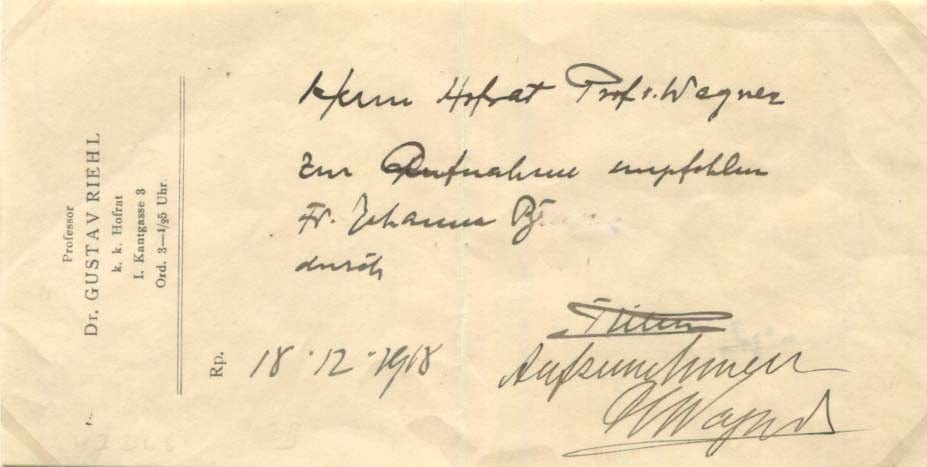 Professor
Dr. GUSTAV RIEHL
k. k. Hofrat
I. Kantgasse 3
Ord. 3—1/25 Uhr.
Herrn Hofrat Prof. v. Wagner
zur Aufnahme empfohlen
Fr. Johanna
durch
Rp. 18.12.1918
Aufzunehmen
Wagner